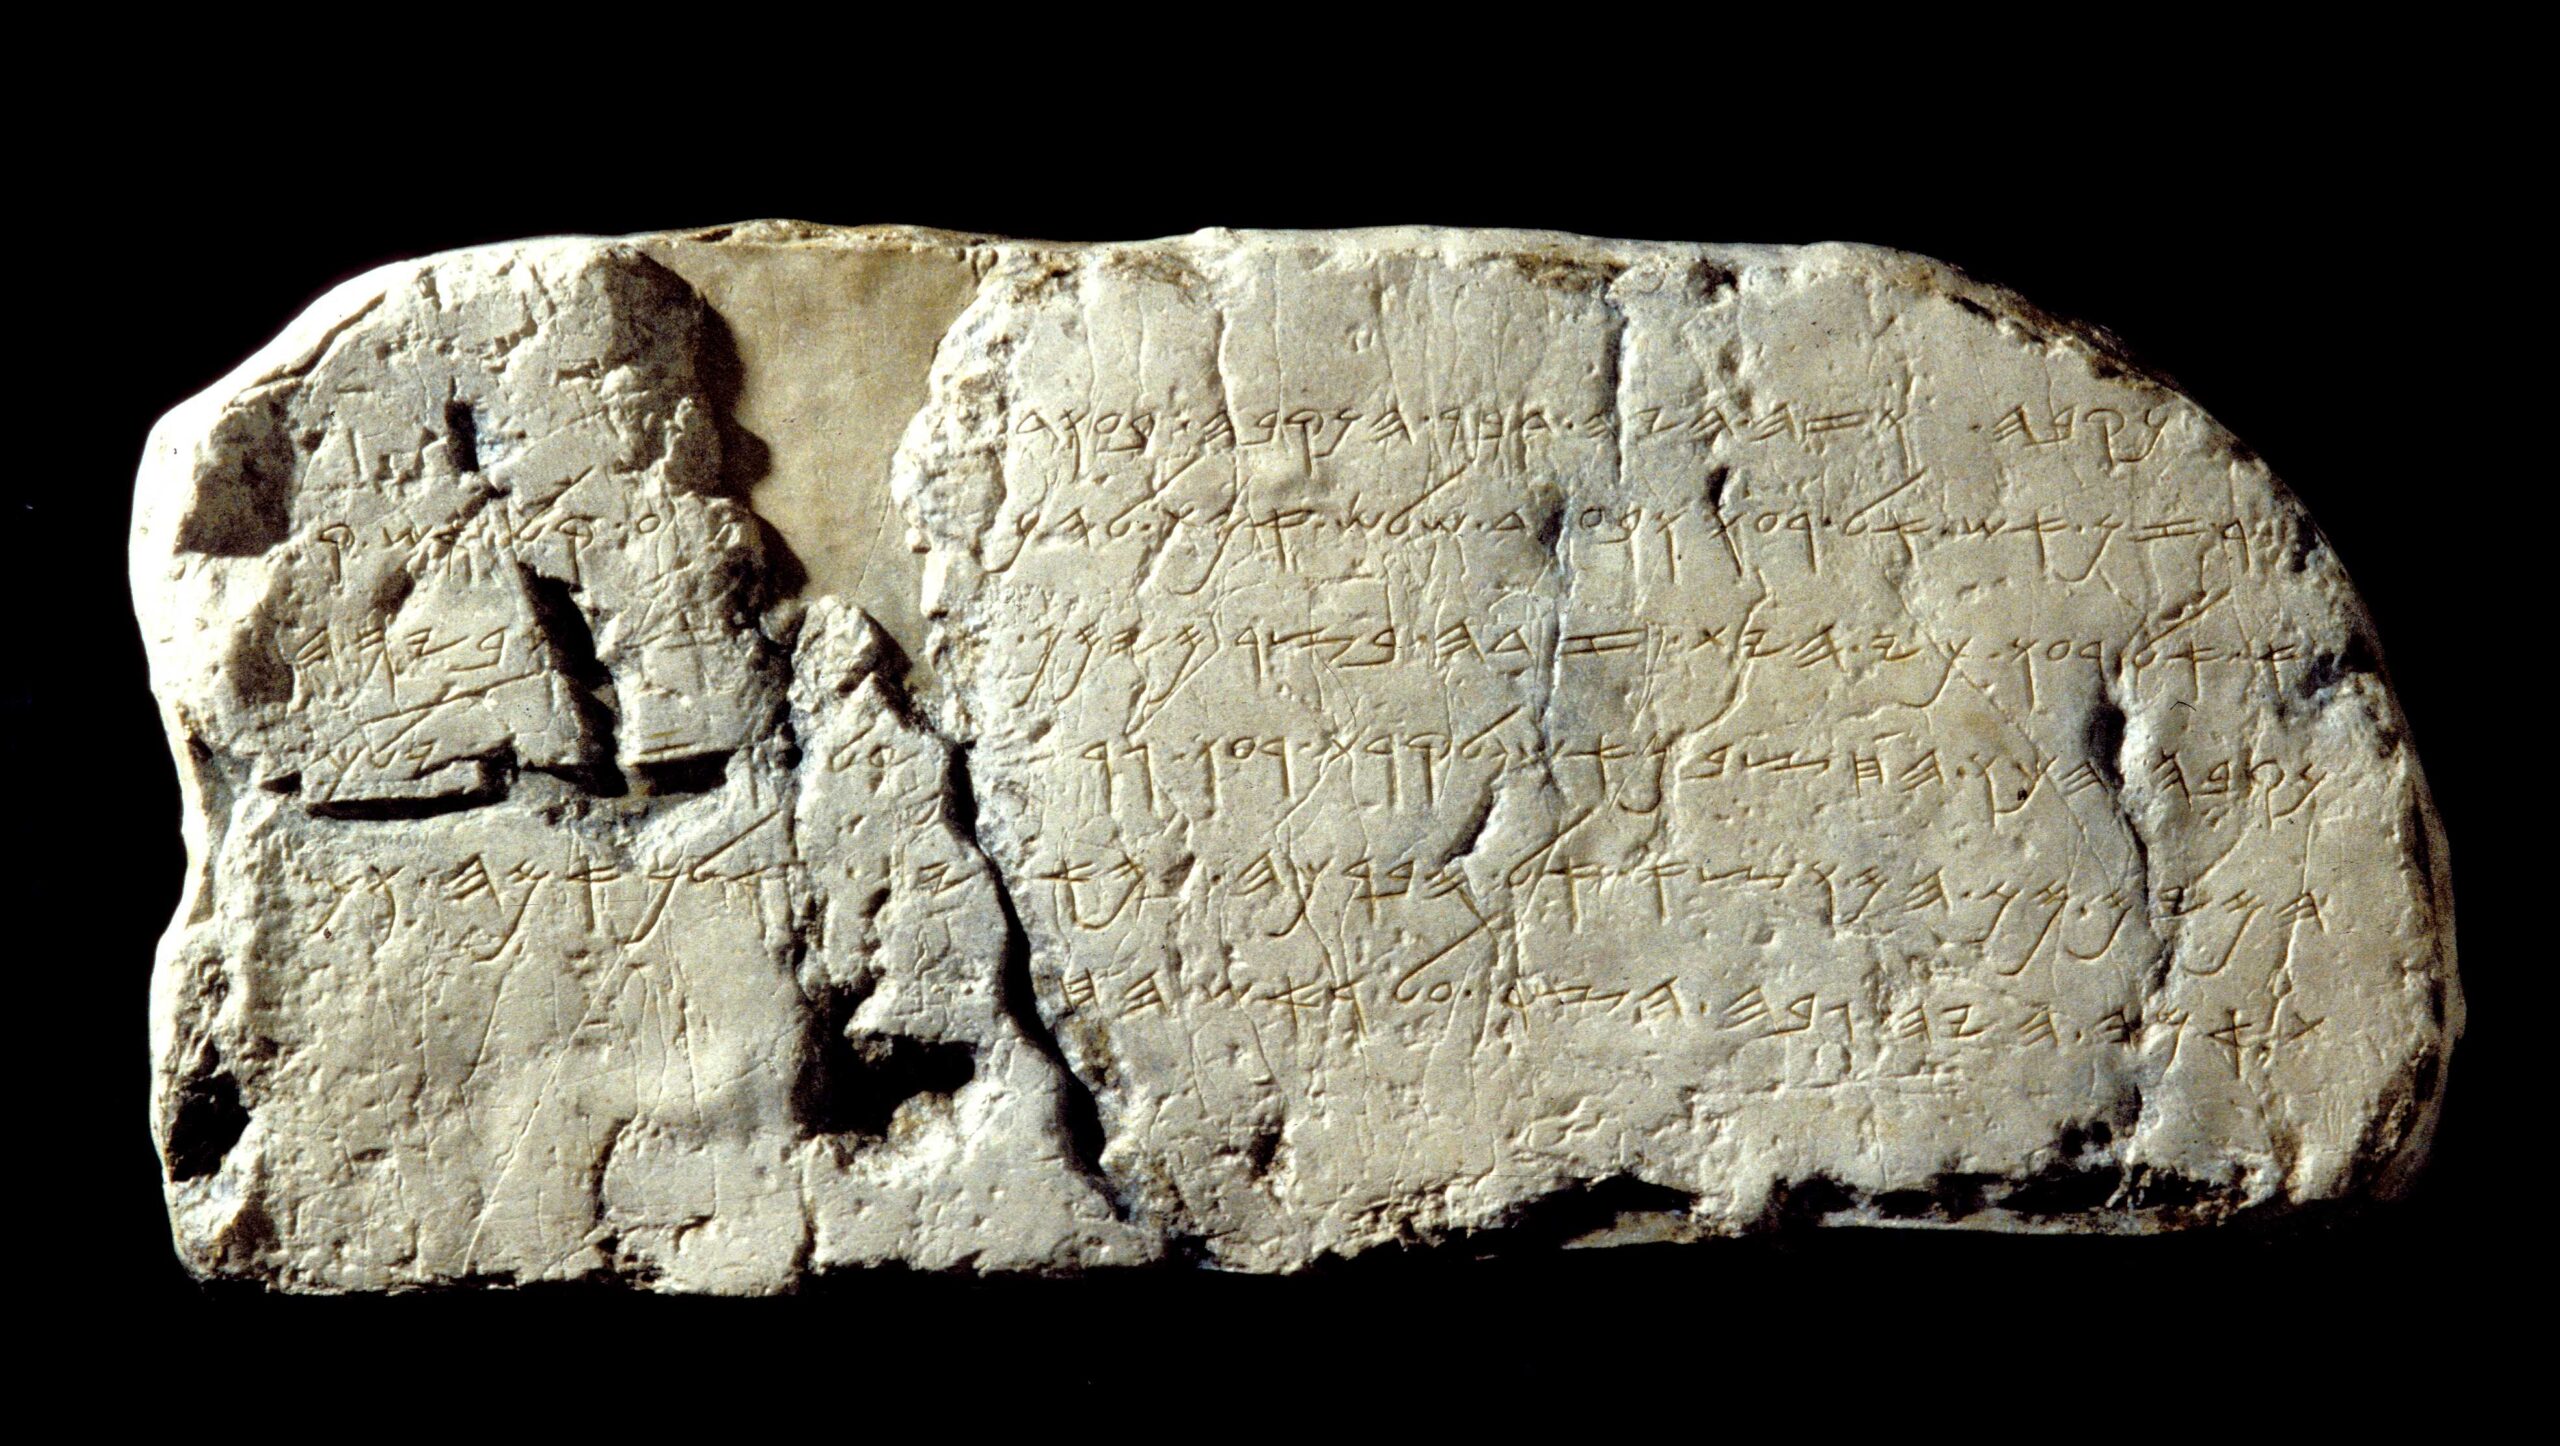 𐤄𐤍𐤒𐤁𐤄 . 𐤅𐤆𐤄 . 𐤄𐤉𐤄 . 𐤃𐤁𐤓 . 𐤄𐤍𐤒𐤁𐤄 . 𐤁𐤏𐤅𐤃
𐤄𐤂𐤓𐤆𐤍 . 𐤀𐤔 . 𐤀𐤋 . 𐤓𐤏𐤅 . 𐤅𐤁𐤏𐤅𐤃 . 𐤔𐤋𐤔 . 𐤀𐤌𐤕 . 𐤋𐤄𐤍 𐤏 . 𐤒𐤋 . 𐤀𐤔 . 𐤒
𐤓𐤀 . 𐤀𐤋 . 𐤓𐤏𐤅 . 𐤊𐤉 . 𐤄𐤉𐤕 . 𐤆𐤃𐤄 . 𐤁𐤑𐤓 . 𐤌𐤉𐤌𐤍 . 𐤀 𐤅𐤁𐤉𐤌 . 𐤄
𐤍𐤒𐤁𐤄 . 𐤄𐤊𐤅 . 𐤄𐤇𐤑𐤁𐤌 . 𐤀𐤔 . 𐤋𐤒𐤓𐤕 . 𐤓𐤏𐤅 . 𐤂𐤓𐤆𐤍 . 𐤏𐤋 . 𐤓𐤆𐤍 . 𐤅𐤉𐤋𐤊𐤅
𐤄𐤌𐤉𐤌 . 𐤌𐤍 . 𐤄𐤌𐤅𐤑𐤀 . 𐤀𐤋 . 𐤄𐤁𐤓𐤊𐤄 . 𐤁𐤌𐤀𐤕𐤉𐤌 . 𐤅𐤀𐤋𐤐 . 𐤀𐤌𐤄 . 𐤅𐤌
𐤕 . 𐤀𐤌𐤄 . 𐤄𐤉𐤄 . 𐤂𐤁𐤄 . 𐤄𐤑𐤓 . 𐤏𐤋 . 𐤓𐤀𐤔 . 𐤄𐤇𐤑𐤁